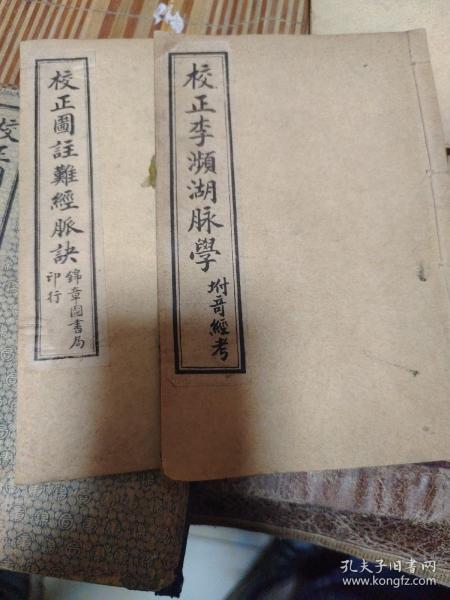 校正李瀕湖脉學
坿奇經考
校正圖註難經脈訣
錦章圖書局
印行
校正圖
孔夫子旧书网
www.kongfz.com